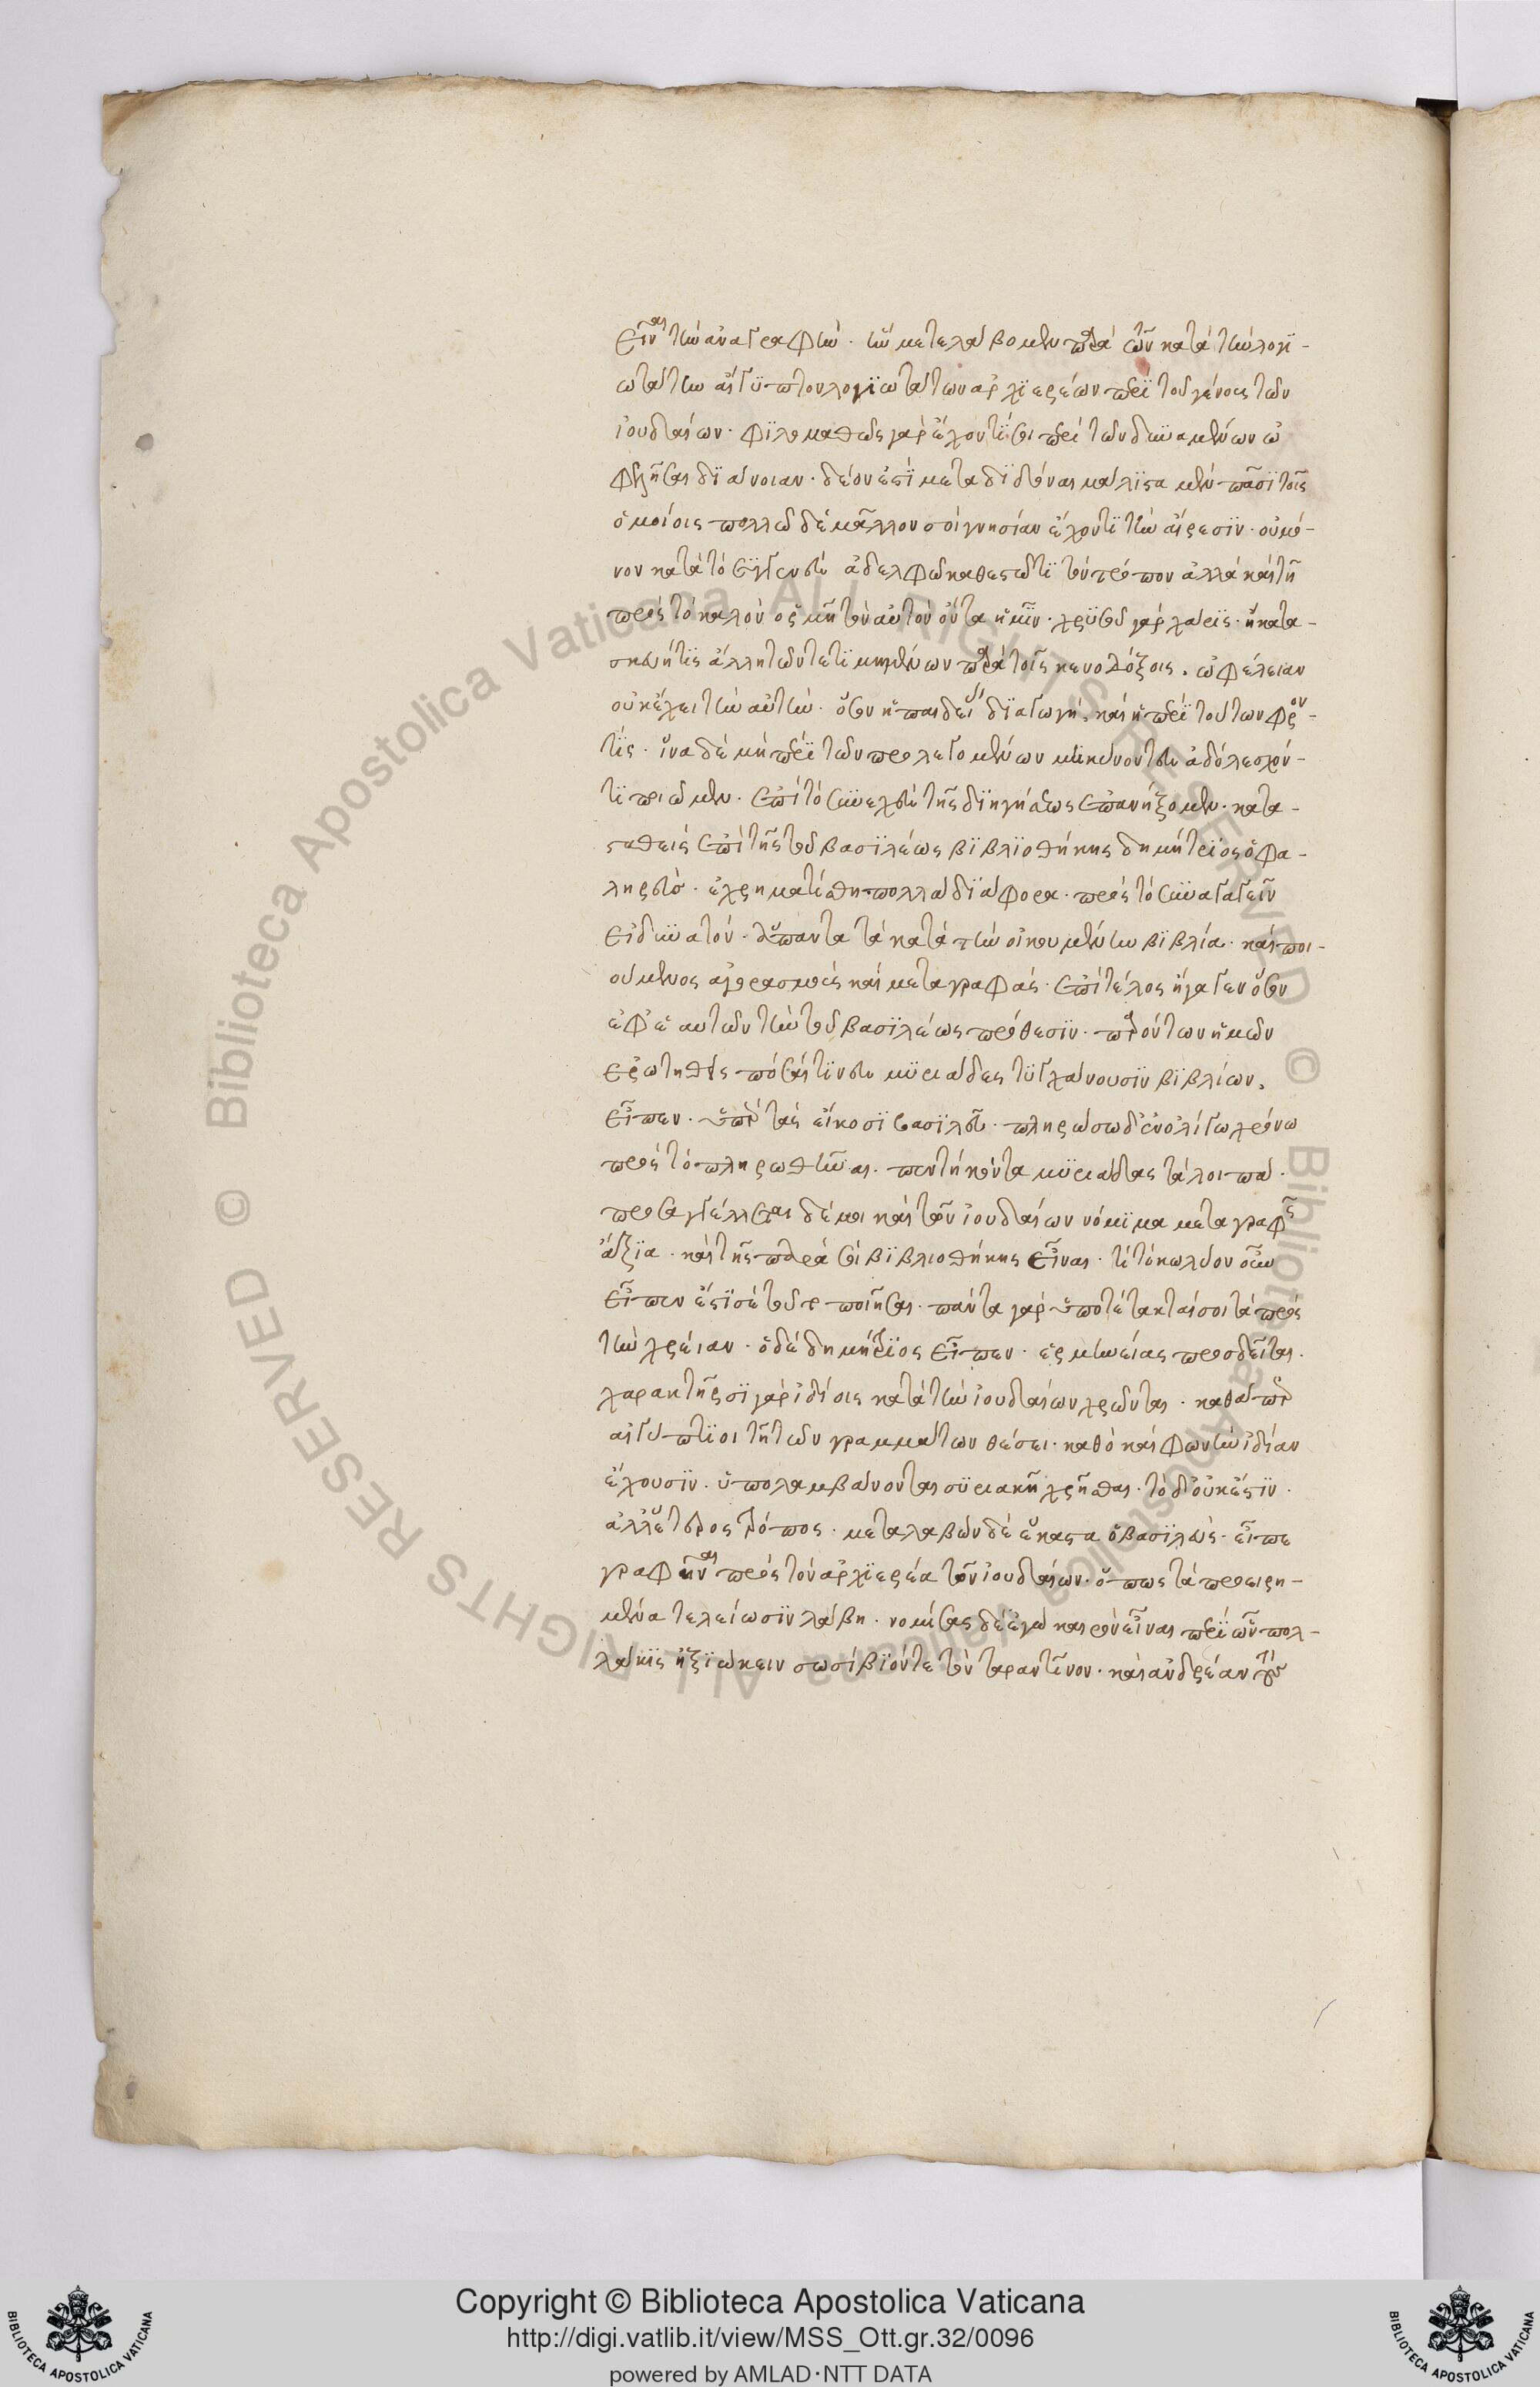 εἶναι τὴν ἀναγραφὴν. ἣν μετελάβομεν παρὰ τῶν κατὰ τὴν λογϊ-
ωτάτην αἴγϋπτον λογϊωτάτων ἀρχϊερέων περὶ τοῦ γένους τῶν
ἰουδαίων. φϊλομαθῶς γὰρ ἔχοντί σοι περὶ τῶν δϋναμένων ὠ
φελῆσαι δϊάνοιαν. δέον ἐστὶ μεταδϊδόναι μάλϊστα μὲν πᾶσϊ τοῖς
ὁμοίοις πολλῶ δὲ μᾶλλον σοὶ γνησίαν ἔχοντϊ τὴν αἵρεσϊν. οὐ μό-
νον κατὰ τὸ συγγενὲς ἀδελφῶ καθεστῶτϊ τὸν τρόπον ἀλλὰ καὶ τῆ
πρὸς τὸ καλὸν ὁρμῆ τὸν αὐτὸν ὄντα ἡμῖν. χρϋσοῦ γὰρ χάρϊς. ἢ κατα-
σκευή τϊς ἄλλη τῶν τετϊμημένων παρὰ τοῖς κενοδόξοις. ὠφέλειαν
οὐκ ἔχει τὴν αὐτὴν. ὅσον ἡ παιδεί δϊαγωγή. καὶ ἡ περὶ τούτων φρον-
τίς. ἵνα δὲ μὴ περὶ τῶν προλεγομένων μϊκύνοντες ἀδόλεσχόν-
τϊ ποιῶμεν. ἐπὶ τὸ σϋνεχὲς τῆς δϊηγήσεως ἐπανήξομεν. κατα-
σταθεὶς ἐπὶ τῆς τοῦ βασϊλέως βϊβλϊοθήκης δημήτρϊος ὁ φα-
ληρεὺς. ἐχρηματίσθη πολλὰ δϊάφορα. πρὸς τὸ σϋναγαγεῖν
εἰ δϋνατόν. ἅπαντα τὰ κατὰ τὴν οἰκουμένην βϊβλία. καὶ ποι-
ούμενος ἀγορασμοὺς καὶ μεταγραφάς. ἐπὶ τέλος ἤγαγεν ὅσον
ἐφ' ἑαυτῶ τὴν τοῦ βασϊλέως πρόθεσϊν. παρόντων ἡμῶν
ἐρωτηθεὶς πόσαι τϊνες μϋριάδες τϋγχάνουσϊν βϊβλίων.
εἶπεν. ὑπὲρ τὰς εἴκοσϊ βασϊλεῦ. πληρώσω δ' ἐν ὀλίγω χρόνω
πρὸς τὸ πληρωθῆναι. πεντήκοντα μϋριάδας τὰ λοιπά.
προσαγγέλλεται δέ μοι καὶ τῶν ἰουδαίων νόμϊμα μεταγραφῆς
ἄξϊα. καὶ τῆς παρὰ σοὶ βϊβλιοθήκης εἶναι. τί τὸ κωλῦον οὖν
εἶπεν ἐστϊ σὲ τοῦτο ποιῆσαι. πάντα γὰρ ὑποτέτακταί σοι τὰ πρὸς
τὴν χρείαν. ὁ δὲ δημήτρϊος εἶπεν. ἑρμηνείας προσδεῖται.
χαρακτῆρσϊ γὰρ ἰδίοις κατὰ τὴν ἰουδαίων χρῶνται. καθάπερ
αἰγύπτϊοι τῆ τῶν γραμμάτων θέσει. καθὸ καὶ φωνὴν ἰδίαν
ἔχουσϊν. ὑπολαμβάνονται σϋριακῆ χρῆσθαι. τὸ δ' οὐκ ἔστϊν.
ἀλλ' ἕτερος τρόπος. μεταλαβὼν δὲ ἕκαστα ὁ βασϊλεὺς. εἶπε
γραφῆναι πρὸς τὸν ἀρχϊερέα τῶν ἰουδαίων. ὅπως τὰ προειρη-
μένα τελείωσϊν λάβη. νομίσας δὲ ἐγὼ καιρὸν εἶναι περὶ ὧν πολ-
λάκϊς ἠξϊώκειν σωσίβϊόν τε τὸν ταραντῖνον. καὶ ἀνδρέαν τοὺς
Copyright © Biblioteca Apostolica Vaticana
http://digi.vatlib.it/view/MSS_Ott.gr.32/0096
powered by AMLAD·NTT DATA